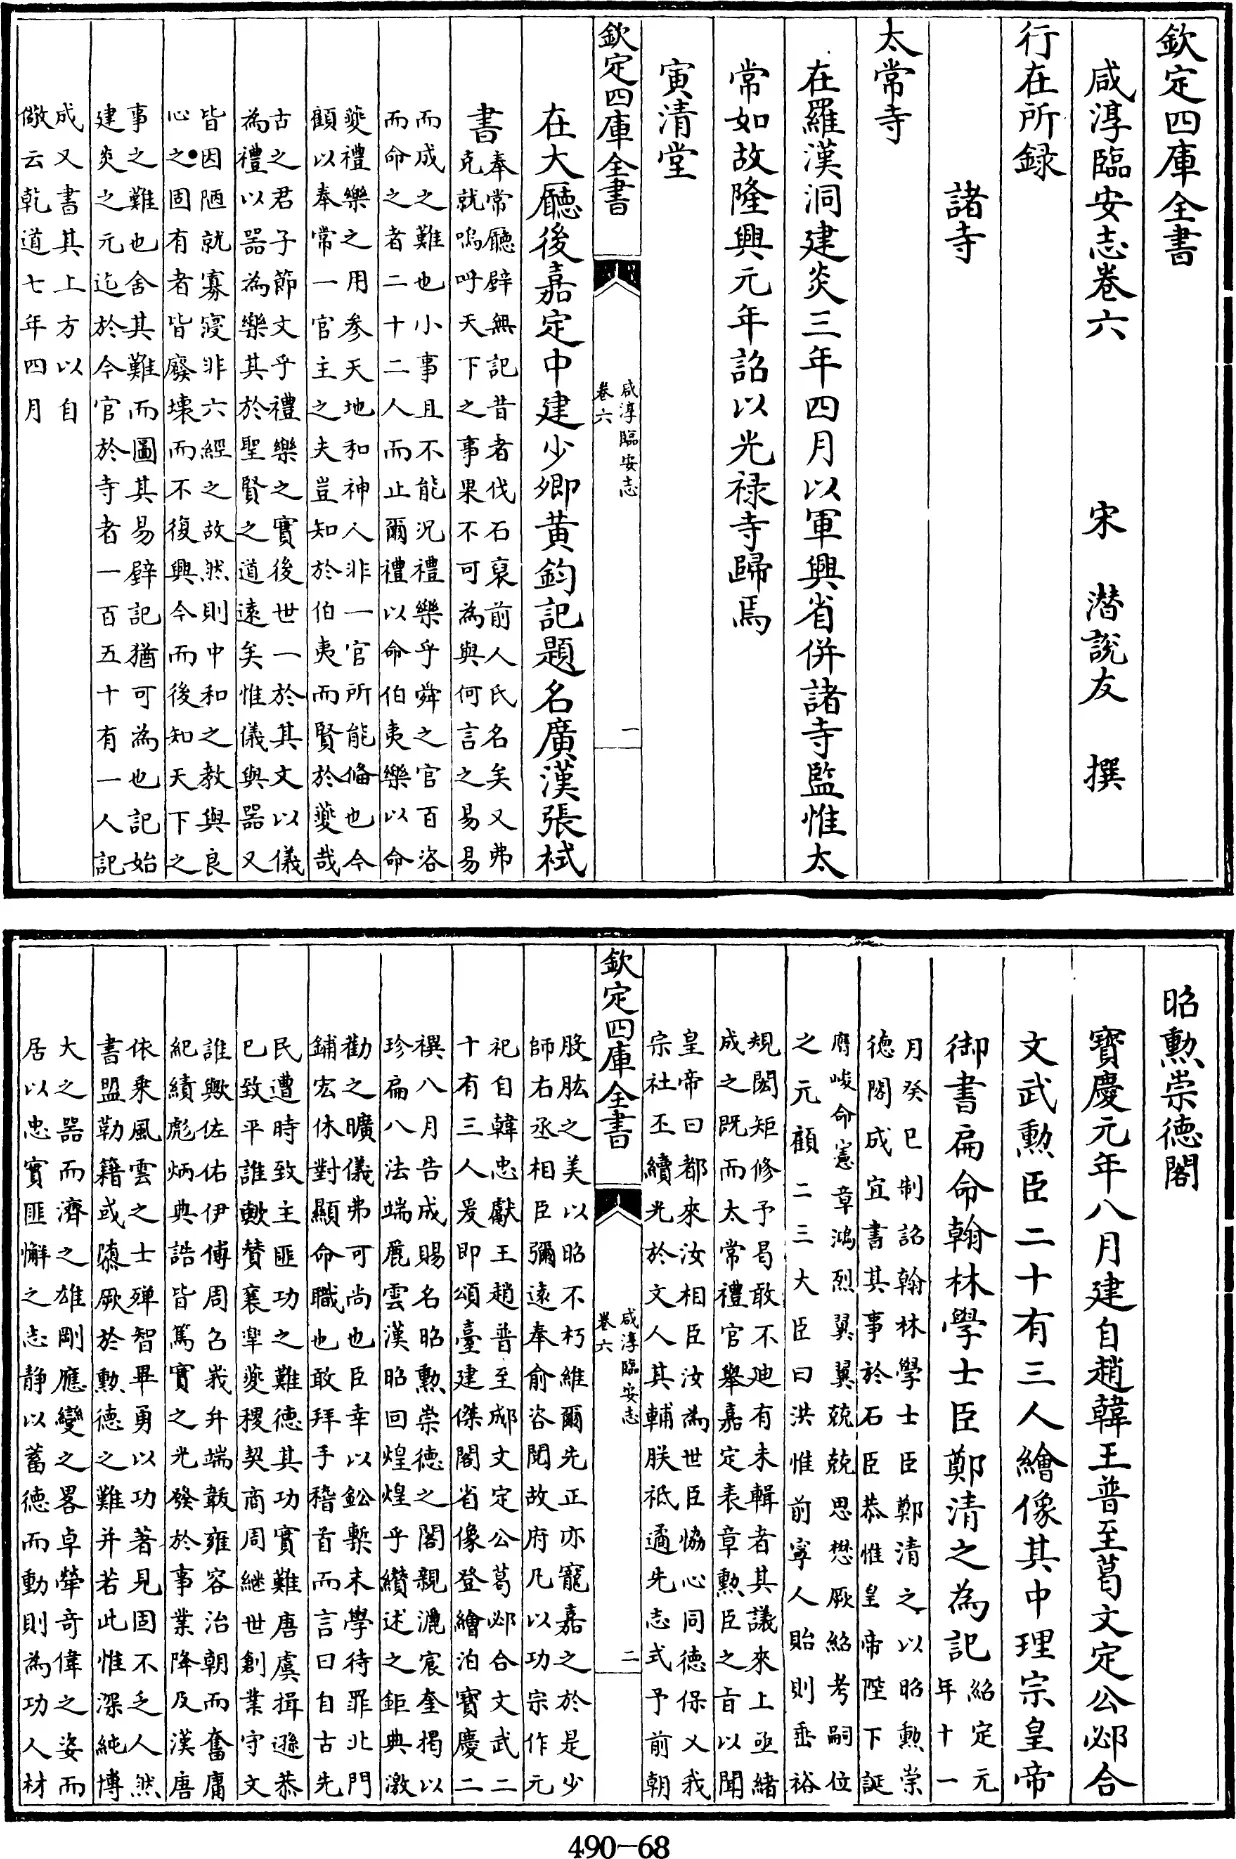 欽定四庫全書
咸淳臨安志卷六 宋 潛說友 撰
行在所録
諸寺
太常寺
在羅漢洞建炎三年四月以軍興省併諸寺監惟太
常如故隆興元年詔以光禄寺歸焉
寅清堂
欽定四庫全書
咸淳臨安志
卷六
一
在大廳後嘉定中建少卿黄鈞記題名廣漢張栻
書
奉常廳辟無記昔者伐石裒前人氏名矣又弗
克就嗚呼天下之事果不可為與何言之易易
而成之難也小事且不能况禮樂乎舜之官百咨
而命之者二十二人而止爾禮以命伯夷樂以命
夔禮樂之用参天地和神人非一官所能備也今
顧以奉常一官主之夫豈知於伯夷而賢於夔哉
古之君子節文乎禮樂之實後世一於其文以儀
為禮以器為樂其於聖賢之道遠矣惟儀與器又
皆因陋就寡寖非六經之故然則中和之教與良
心之固有者皆廢壊而不復興今而後知天下之
事之難也舍其難而圖其易壁記猶可為也記始
建炎之元迄於今官於寺者一百五十有一人記
成又書其上方以自
儆云乾道七年四月
昭勲崇德閣
寶慶元年八月建自趙韓王普至葛文定公邲合
文武勲臣二十有三人繪像其中理宗皇帝
御書扁命翰林學士臣鄭清之為記
紹定元
年十一
月癸巳制詔翰林學士臣鄭清之以昭勲崇
德閣成宜書其事於石臣恭惟皇帝陛下誕
膺峻命憲章鴻烈翼翼兢兢思懋厥紹考嗣位
之元顧二三大臣曰洪惟前寧人貽則垂裕
規閎矩修予曷敢不迪有未輯者其議來上亟緒
成之既而太常禮官舉嘉定表章勲臣之旨以聞
皇帝曰都來汝相臣汝為世臣恊心同德保乂我
宗社丕纘光於文人其輔朕祗遹先志式予前朝
欽定四庫全書
咸淳臨安志
卷六
二
股肱之美以昭不朽維爾先正亦寵嘉之於是少
師右丞相臣彌遠奉俞咨閲故府凡以功宗作元
祀自韓忠獻王趙普至邲文定公葛邲合文武二
十有三人爰即頌臺建傑閣省像登繪洎寶慶二
禩八月告成賜名昭勲崇德之閣親灑宸奎揭以
珍扁八法端麗雲漢昭回煌煌乎纘述之鉅典激
勸之曠儀弗可尚也臣幸以鈆槧末學待罪北門
鋪宏休對顯命職也敢拜手稽首而言曰自古先
民遭時致主匪功之難德其功實難唐虞揖遜恭
已致平誰歟賛襄臯夔稷契商周繼世創業守文
誰歟佐佑伊傅周召峩弁端韍雍容治朝而奮庸
紀績彪炳典誥皆篤實之光發於事業降及漢唐
依乗風雲之士殫智畢勇以功著見固不乏人然
書盟勒籍或厥於勲德之難并若此惟深純博
大之器而濟之雄剛應變之畧卓犖奇偉之姿而
居以忠實匪懈之志静以蓄德而動則為功人材
490-68